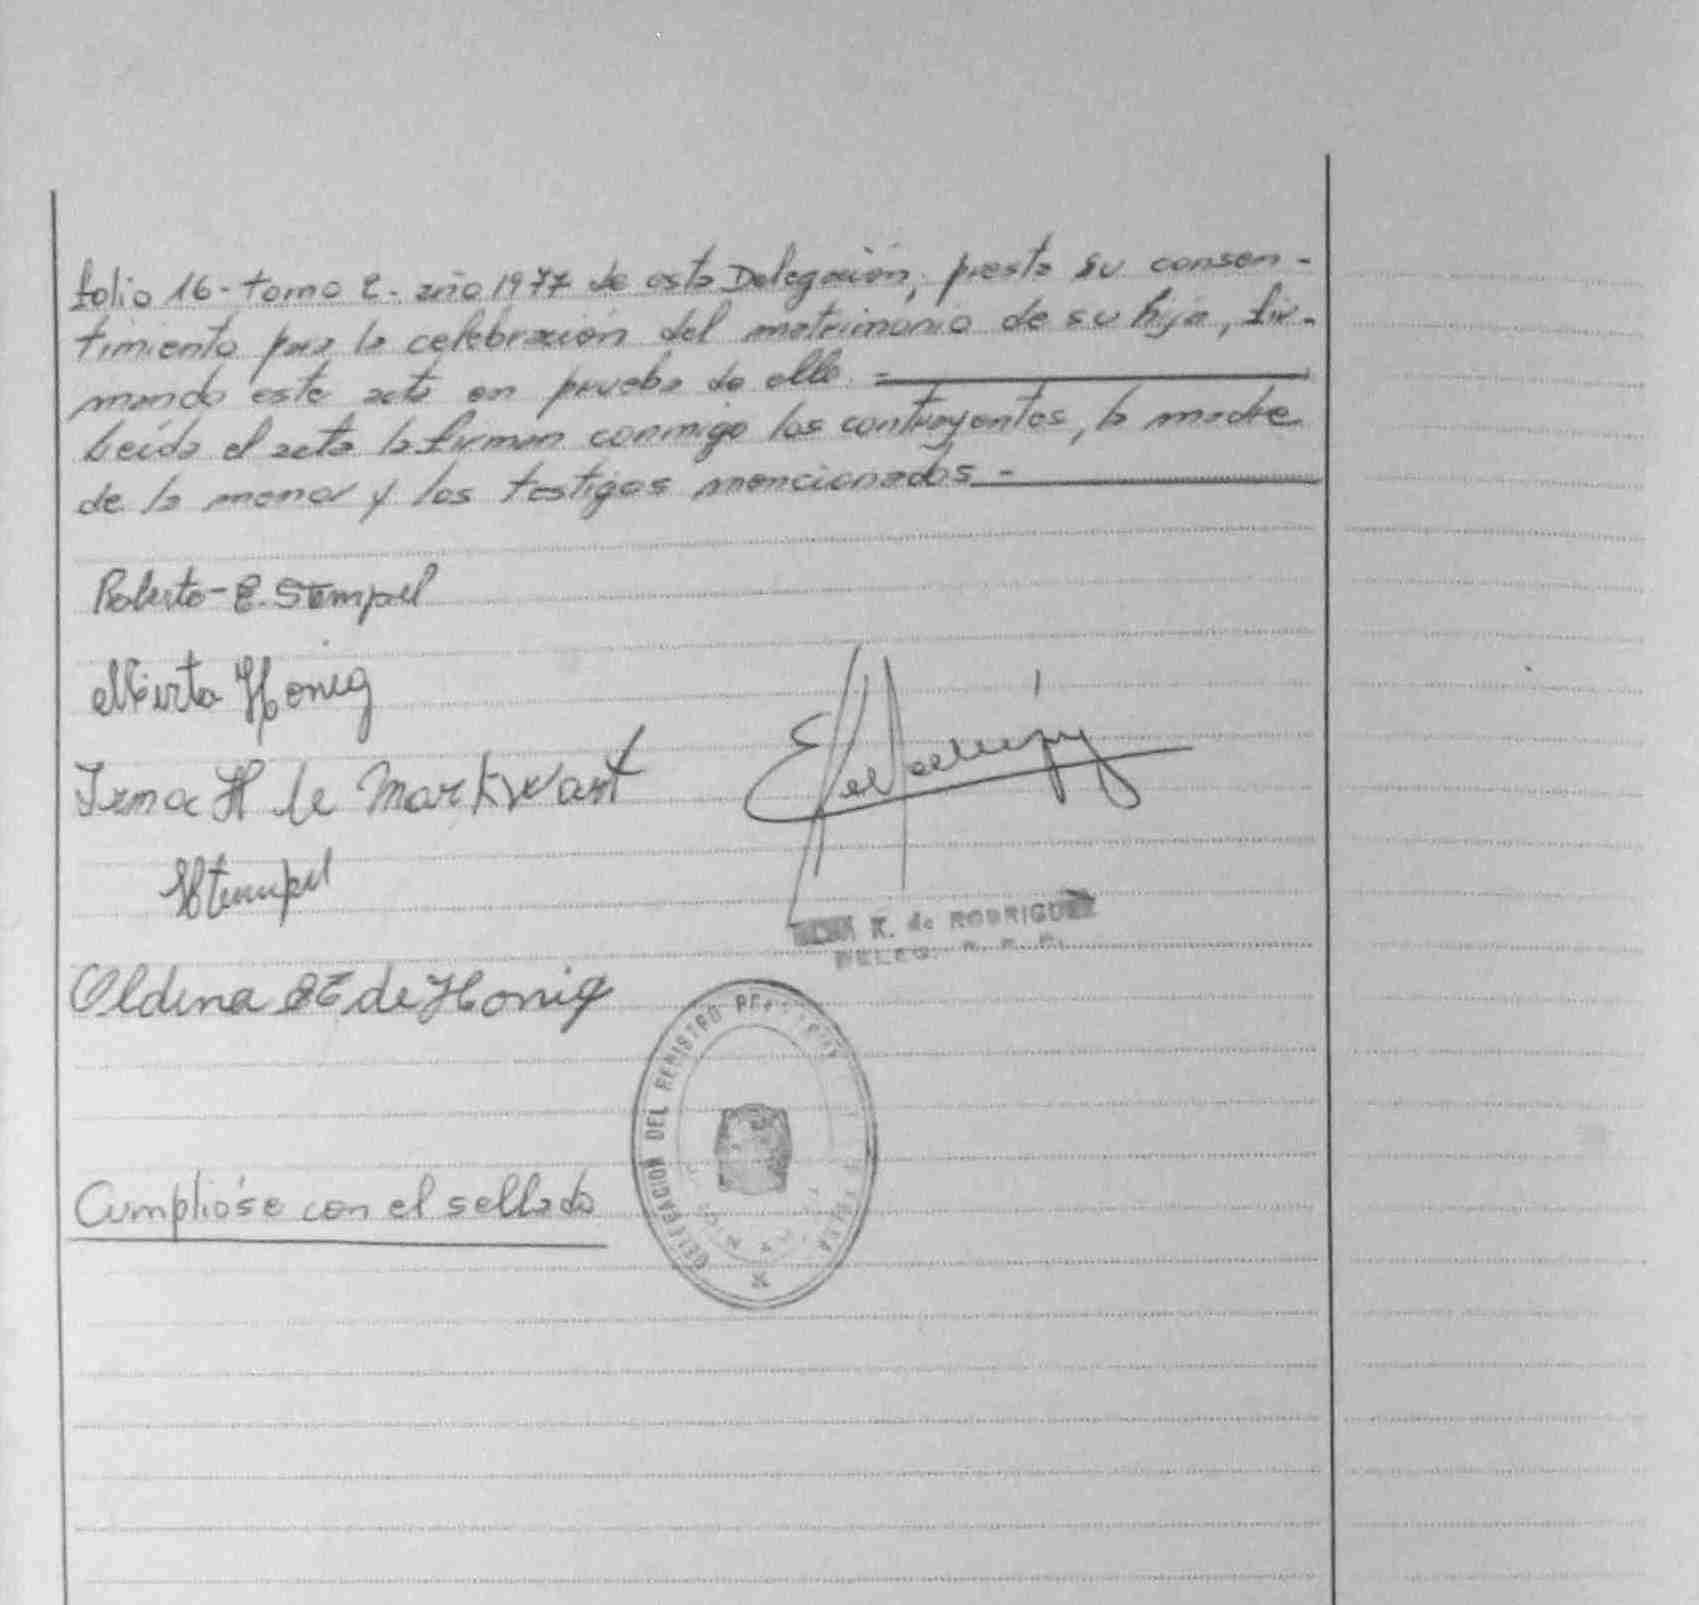 folio 16- tomo 2- año 1977 de esta Delegación, presta su consen-
timiento para la celebración del matrimonio de su hija, fir-
mando este acta en prueba de ello. =
Leída el acta la firman conmigo los contrayentes, la madre
de la menor y los testigos mencionados. -
Roberto - E. Stempel
Mirta Honig
Irma H de Markwart
HStempel
Oldina de Honig
R. de RODRIGUEZ
DELEG.
DELEGACION DEL REGISTRO
Cumplióse con el sellado